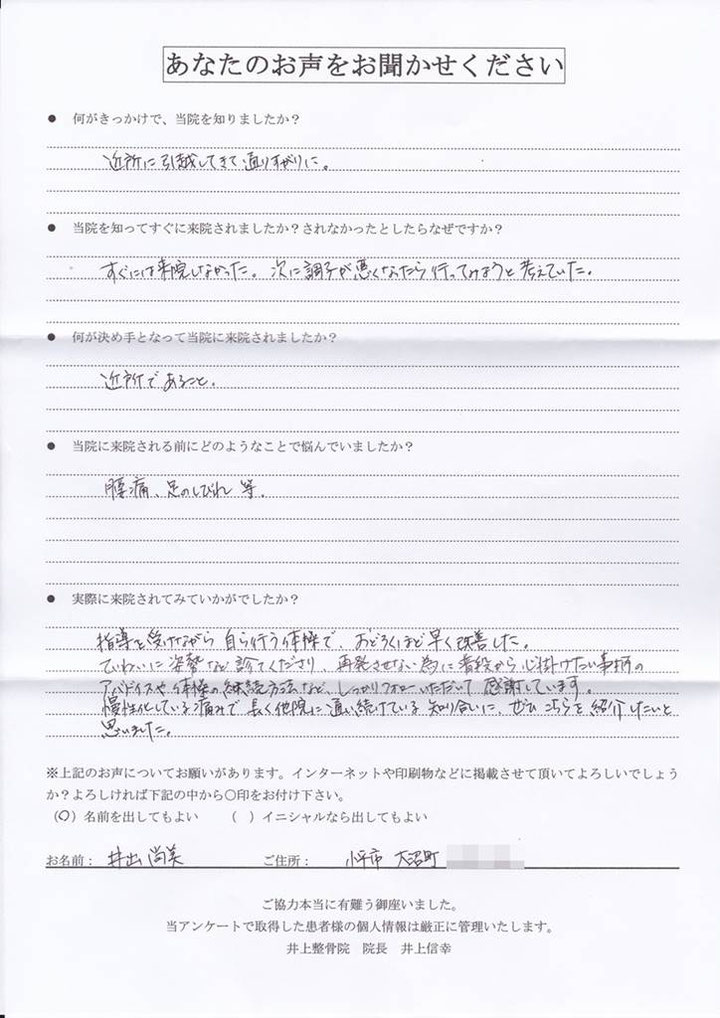 あなたのお声をお聞かせください
● 何がきっかけで、当院を知りましたか？
近所に引越してきて通りすがりに。
● 当院を知ってすぐに来院されましたか？されなかったとしたらなぜですか？
すぐには来院しなかった。次に調子が悪くなったら行ってみようと考えていた。
● 何が決め手となって当院に来院されましたか？
近所であること。
● 当院に来院される前にどのようなことで悩んでいましたか？
腰痛、足のしびれ 等。
● 実際に来院されてみていかがでしたか？
指導を受けながら自ら行う体操で、おどろくほど早く改善した。
ていねいに姿勢など診てくださり、再発させない為に普段から心掛けたい事柄の
アドバイスや体操の継続方法など、しっかりフォローいただいて感謝しています。
慢性化している痛みで長く他院に通い続けている知り合いに、ぜひこちらを紹介したいと
思いました。
※上記のお声についてお願いがあります。インターネットや印刷物などに掲載させて頂いてよろしいでしょう
か？よろしければ下記の中から〇印をお付け下さい。
（〇）名前を出してもよい （ ）イニシャルなら出してもよい
お名前： 井出 尚美 ご住所： 小平市 大沼町
ご協力本当に有難う御座いました。
当アンケートで取得した患者様の個人情報は厳正に管理いたします。
井上整骨院 院長 井上信幸